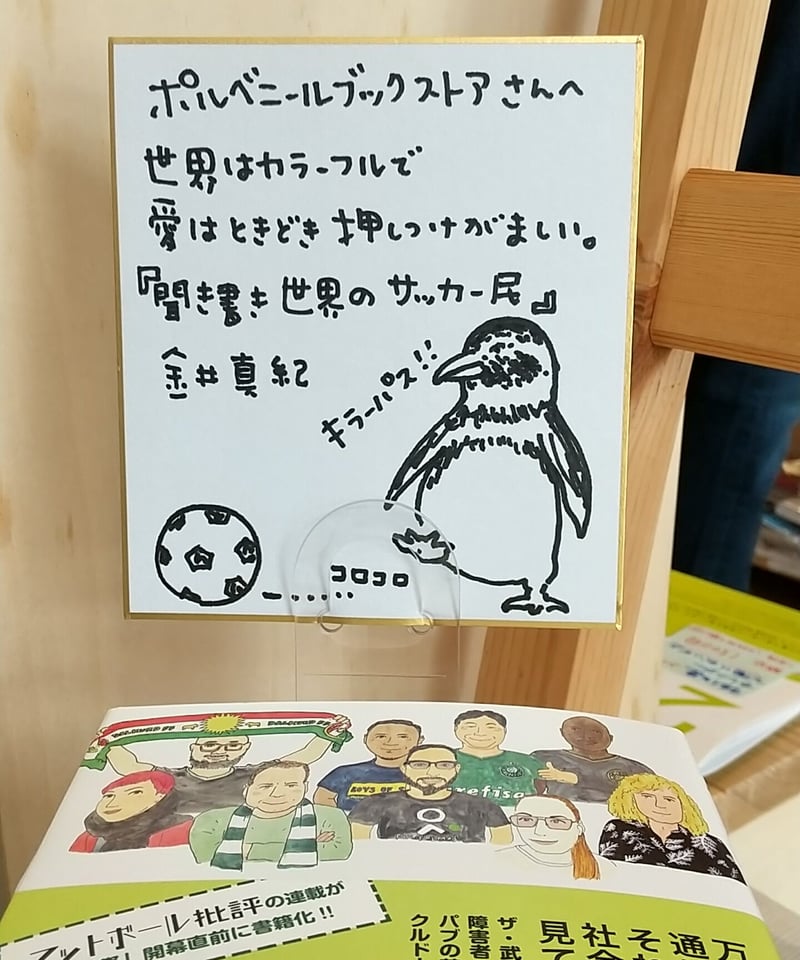 ポルベニールブックストアさんへ
世界はカラーフルで
愛はときどき押しつけがましい。
『聞き書き世界のサッカー民』
金井真紀
キラーパス!!
コロコロ
BOYS OF
refisa
フットボール批評の連載が
開幕直前に書籍化!!
ザ・武
障害者
パブの
クルド
万
通
それ
社会
見て